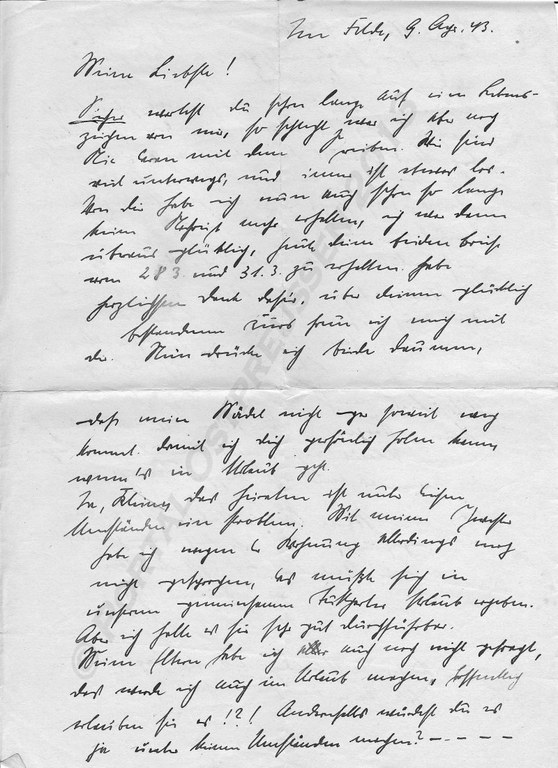 Im Felde, 9. Apr. 43.
Meine Liebste!
Sicher wartest du schon lange auf ein Lebens-
zeichen von mir, so schlecht war ich aber noch
nie daran mit dem Schreiben. Wir sind
viel unterwegs, und immer ist etwas los.
Von dir habe ich nun auch schon so lange
keine Nachricht mehr erhalten, ich war denn
überaus glücklich, heute deine beiden Briefe
vom 28 3. und 31.3. zu erhalten. Habe
herzlichsten Dank dafür, über deinen glücklich
bestandenen Kurs freue ich mich mit
dir. Nun drücke ich beide Daumen,
daß mein Mädel nicht gar soweit weg
kommt. damit ich dich persönlich holen kann,
wenn's in Urlaub geht.
Ja, Kleines das Heiraten ist unter diesen
Umständen ein Problem. Mit meiner
habe ich wegen d Wohnung allerdings noch
nicht gesprochen, das müßte sich in
unserem gemeinsamen Urlaub ergeben.
Aber ich halte es für sehr gut durchführbar.
Meine Eltern habe ich auch noch nicht gefragt,
das werde ich auch im Urlaub machen, hoffentlich
erlauben sie es!?! Andernfalls würdest du es
ja unter keinen Umständen machen? – – – –
© PORTAL OSTPREUSSEN 2018